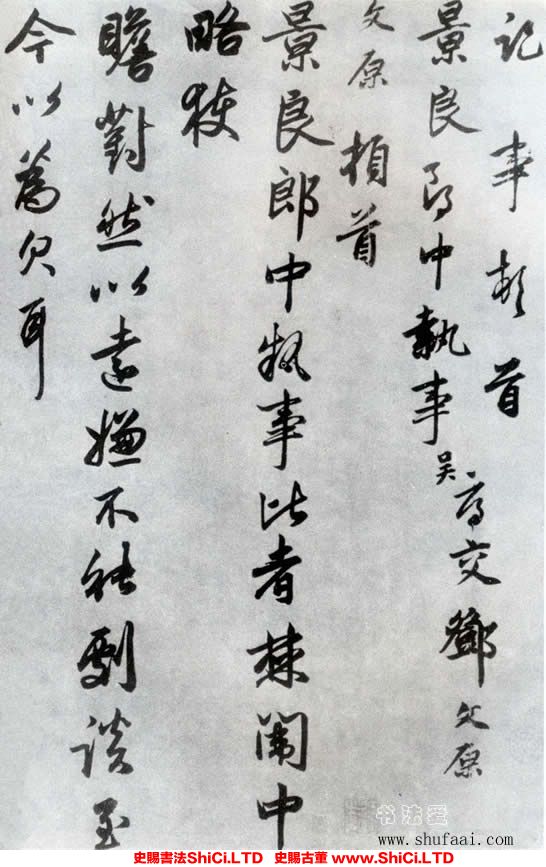 記事頓首
景良郎中執事吳高交鄧文原
文原頓首
景良郎中執事比者棘闈中
略獲
瞻對然以遠嫌不能劇談至
今以為欠耳
书法爱
www.shufaai.com
史賜書法ShiCi.LTD 史賜古董 www.ShiCi.LTD